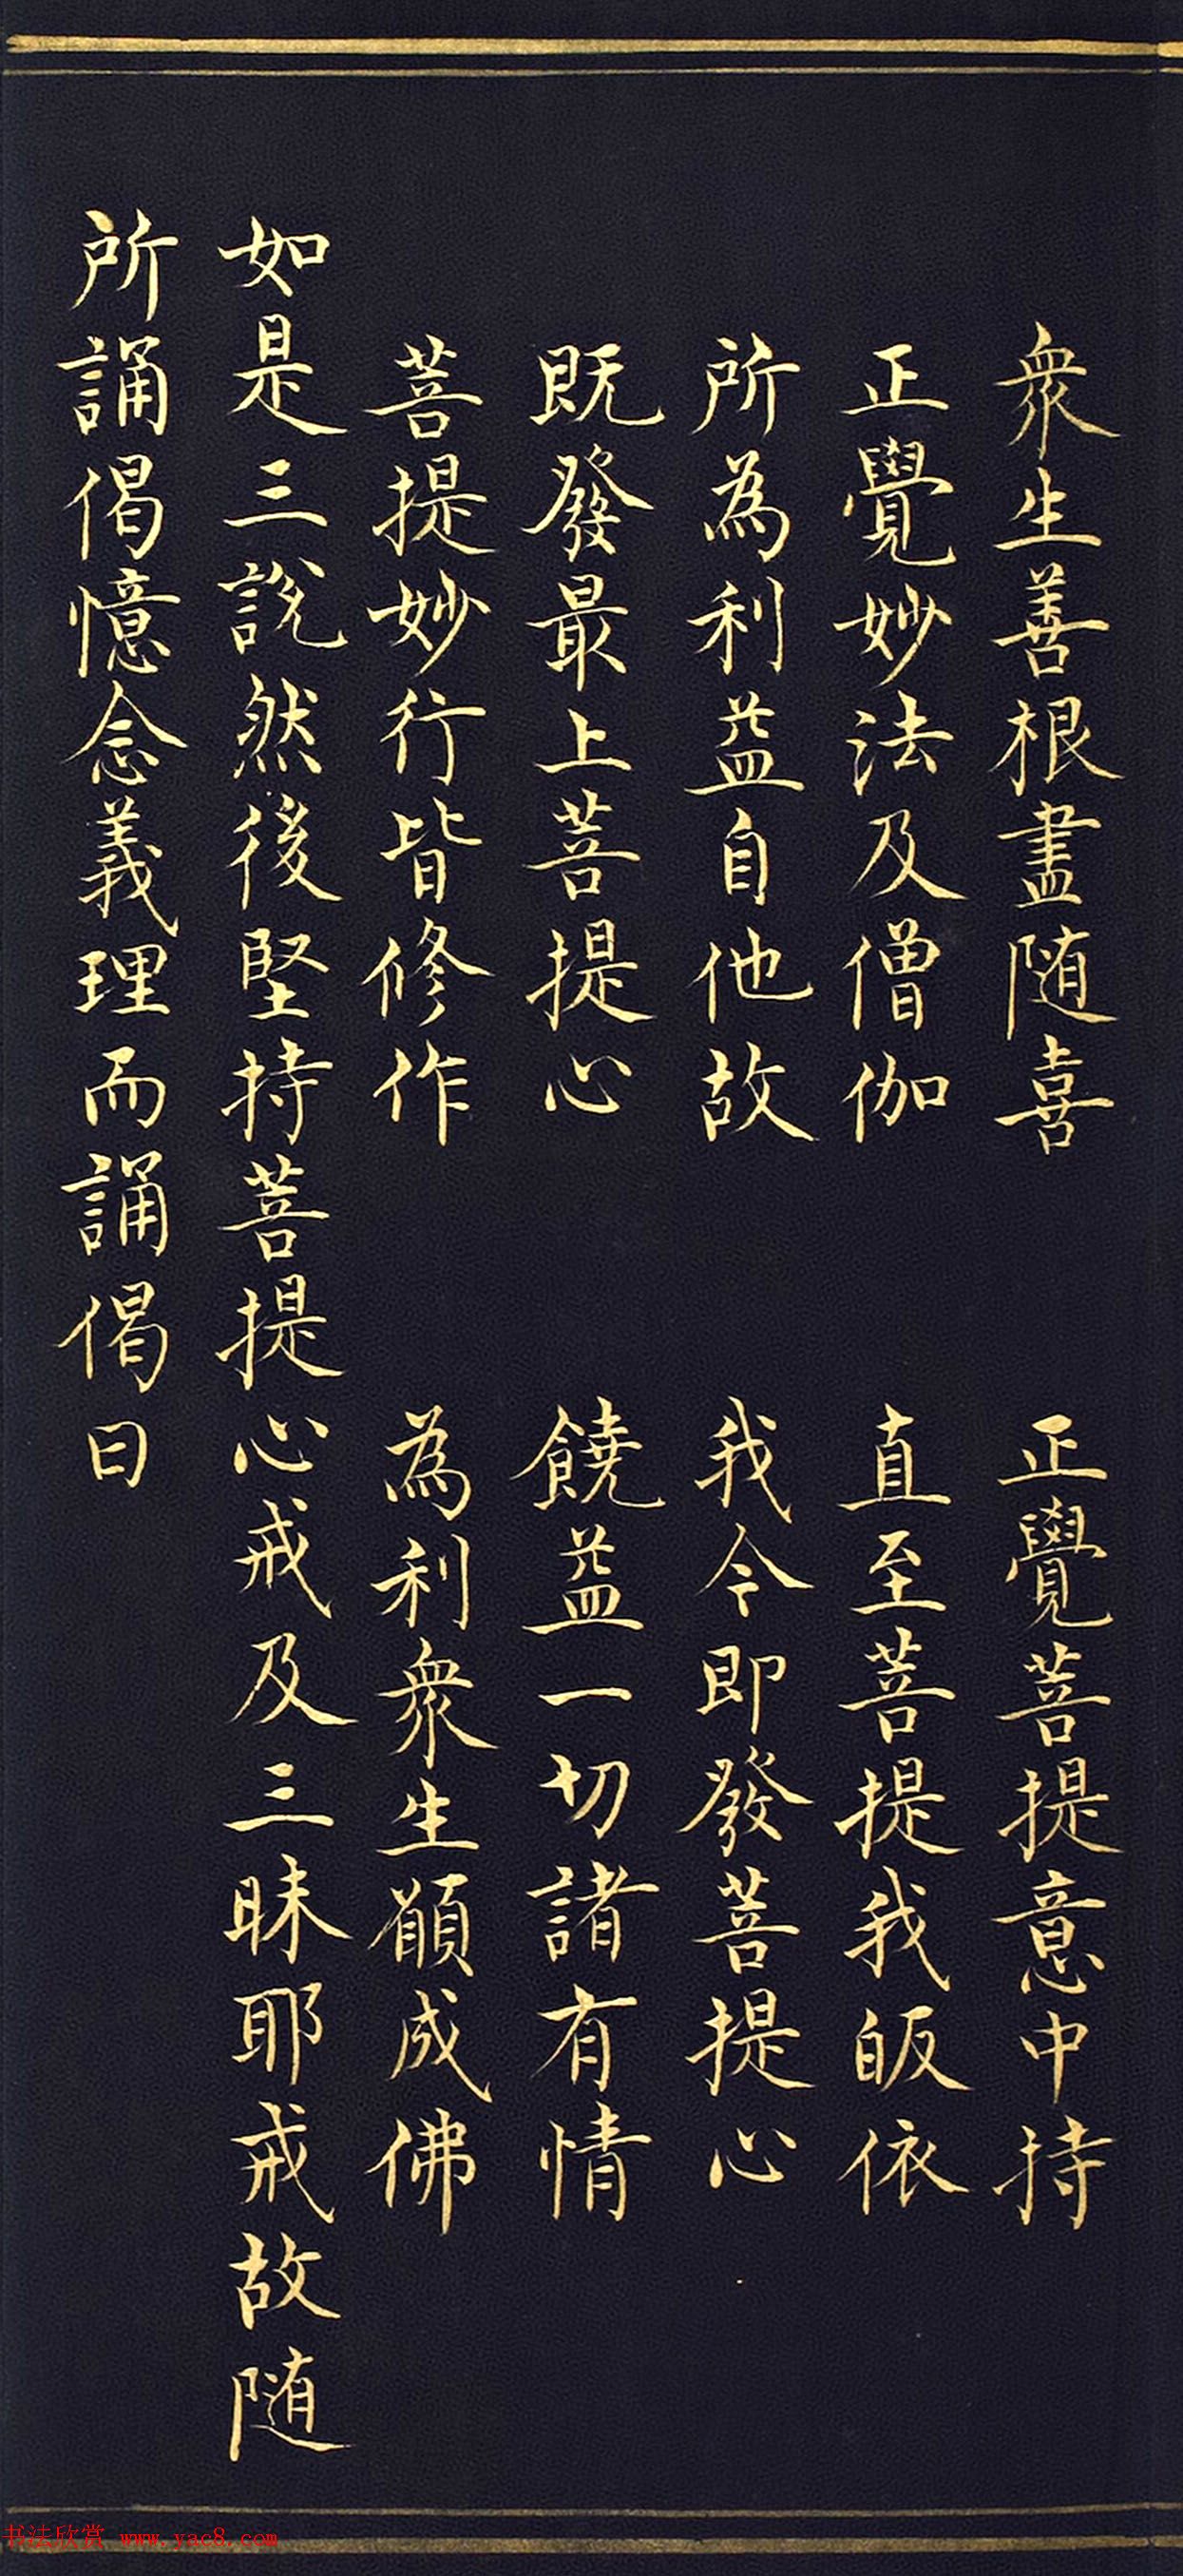 衆生善根盡随喜　正覺菩提意中持
正覺妙法及僧伽　直至菩提我皈依
所為利益自他故　我今即發菩提心
既發最上菩提心　饒益一切諸有情
菩提妙行皆修作　為利衆生願成佛
如是三說然後堅持菩提心戒及三昧耶戒故随
所誦偈憶念義理而誦偈曰
书法欣赏 www.yac8.com